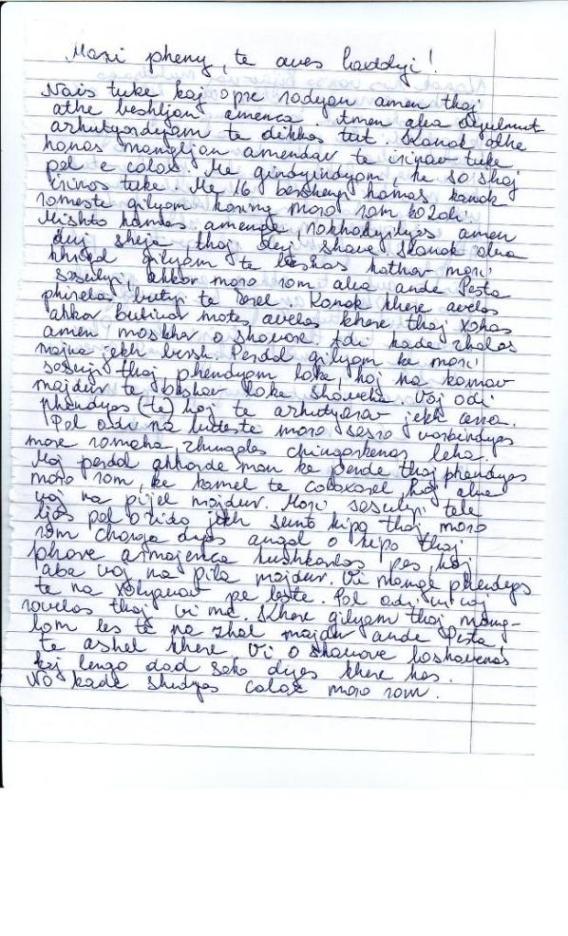 Mari pheny, te aves baxtalyi!
Nais tuke kaj opre rodyan amen thaj
athe beshljan amenca. Amen aba
arhutyardyam te dikhas tut. Kanak athe
hanas mangljan amendar te irinav tuke
pal e colax. Me gindyindyom, ke so shaj
irinos tuke. Me 16 bershengi hamas, kanak
romeste gilyom karing moro rom
Mishto hamas amenge, rakhadyiljas amen
duj sheja, thaj duj shave. Kanak aba
khetand gilyam te beshas kathar mori
sasulyi, akkor moro rom aba ande Pesta
phirelas, butyi te kerel. Kanak khere avelas
akkor butivar mates avelas khere thaj xohas
amen maskhar o shavore. Adi kade zhalas
majna jekh bersh. Perdal gilyom ke mori
sasuj thaj phendyom lake, hoj na kamav
majdur te beshav lake shavesa. Voj odi
phendyas (te) hoj te azhutyarav jekh cerra.
Pal odi na buteste moro sasro vorbindyas
more romesa zhungales chingardenas lesa.
Maj perdal akharde man ke pende thaj phendyas
moro rom, ke kamel te colaxarel, hoj aba
voj na pijel majdur. Mori sasulyi tele
lias pal o zido jekh sento kipo thaj moro
rom changa dyas angal o kipo thaj
phare armajenca kushkarlas pes, hoj
aba voj na pila majdur. Vi mange phendyas
te na xolyavav pe leste. Pal odi vi voj
rovelas thaj vi me. Khere gilyam thaj mang-
lom les te na zhal majdur ande Pesta,
te ashel khere. Vi o shavore loshavenas
kaj lengo dad sako dyes khere has.
No kade shudyas colax moro rom.